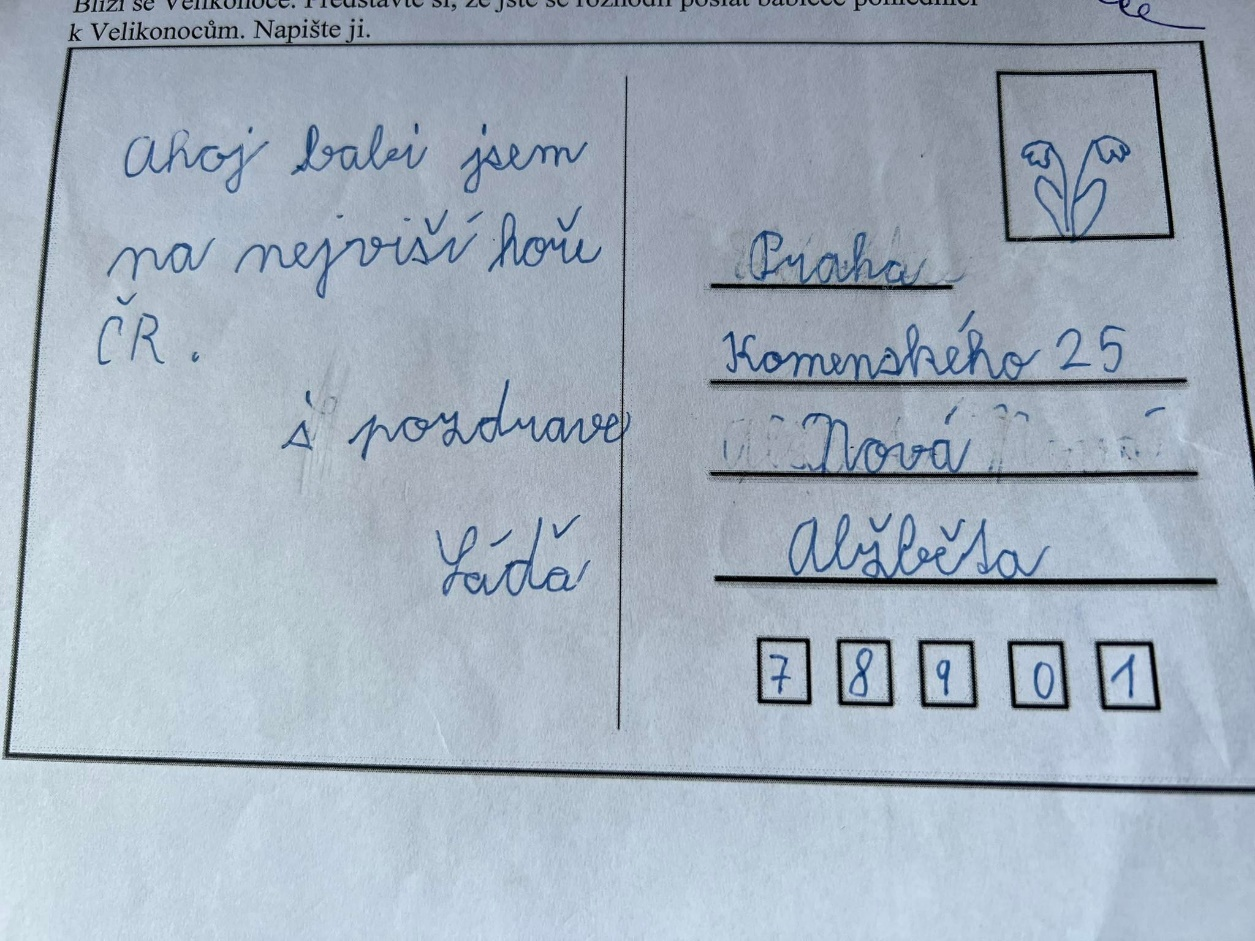 Blíží se Velikonoce. Představte si, že jste se rozhodli poslat babičce pohlednici
k Velikonocům. Napište ji.
Ahoj babi jsem
na nejviší hoře
ČR.
s pozdrave
Láďa
Praha
Komenského 25
Nová
Alžběta
7 8 9 0 1